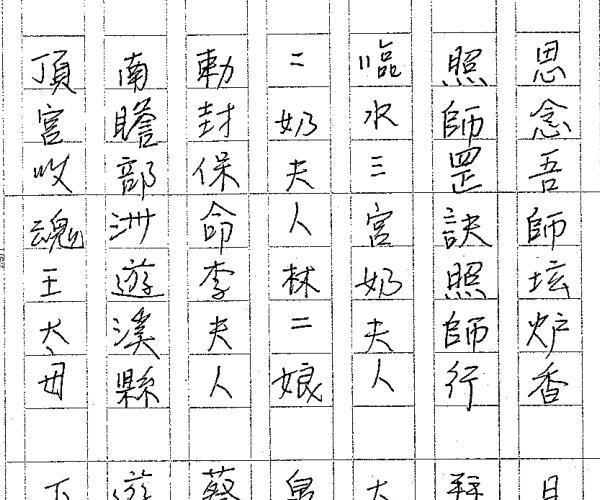 思念吾師坛炉香
照師罡訣照師行
臨水三宮奶夫人
二奶夫人林二娘
勅封保命李夫人
南贍部洲遊溪縣
頂宮收魂王太母